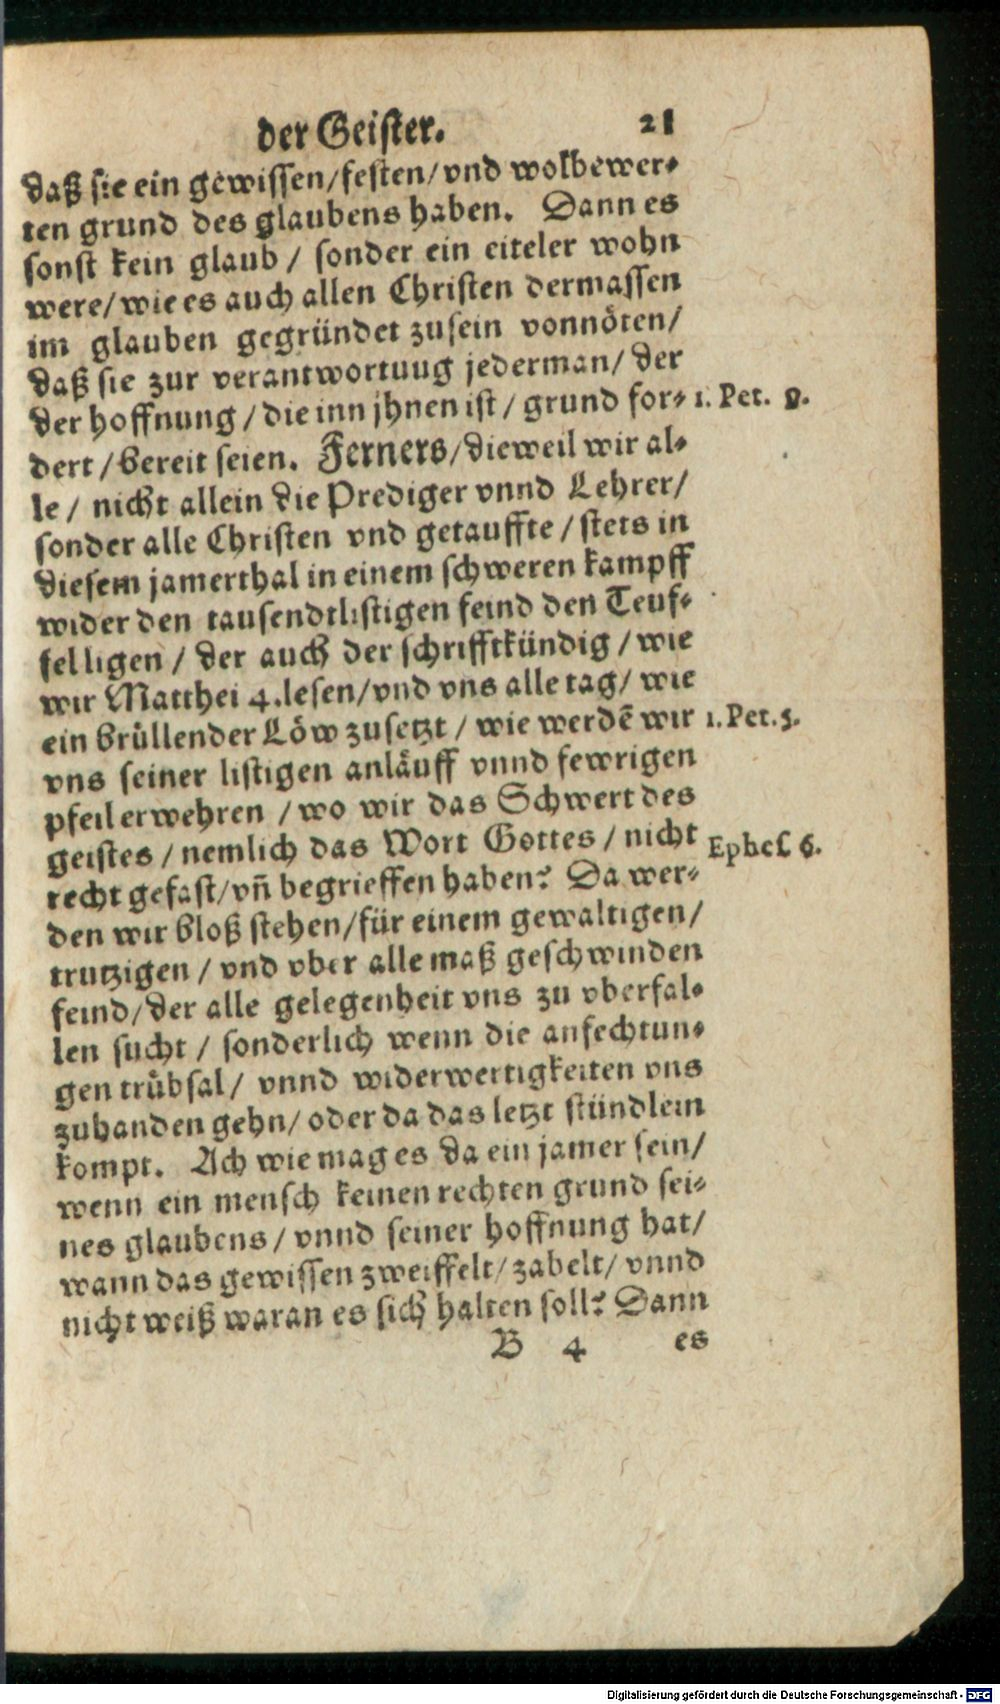 der Geister. 21
daß sie ein gewissen/festen/vnd wolbewer-
ten grund des glaubens haben. Dann es
sonst kein glaub / sonder ein eiteler wohn
were/wie es auch allen Christen dermassen
im glauben gegründet zusein vonnöten/
daß sie zur verantwortuug jederman/ der
der hoffnung / die inn jhnen ist / grund for- 1. Pet. 8.
dert / bereit seien. Ferners/dieweil wir al-
le / nicht allein die Prediger vnnd Lehrer/
sonder alle Christen vnd getauffte / stets in
diesem jamerthal in einem schweren kampff
wider den tausendtlistigen feind den Teuf-
fel ligen / der auch der schrifftkündig / wie
wir Matthei 4. lesen/vnd vns alle tag/ wie
ein brüllender Löw zusetzt / wie werdē wir 1. Pet. 5.
vns seiner listigen anläuff vnnd fewrigen
pfeil erwehren / wo wir das Schwert des
geistes / nemlich das Wort Gottes / nicht Ephes. 6.
recht gefast/vñ begrieffen haben? Da wer-
den wir bloß stehen/für einem gewaltigen/
trutzigen / vnd vber alle maß geschwinden
feind/der alle gelegenheit vns zu vberfal-
len sucht / sonderlich wenn die anfechtun-
gen trübsal/ vnnd widerwertigkeiten vns
zuhanden gehn/ oder da das letzt stündlein
kompt. Ach wie mag es da ein jamer sein/
wenn ein mensch keinen rechten grund sei-
nes glaubens / vnnd seiner hoffnung hat/
wann das gewissen zweiffelt/zabelt/ vnnd
nicht weiß waran es sich halten soll? Dann
B 4 es
Digitalisierung gefördert durch die Deutsche Forschungsgemeinschaft - DFG